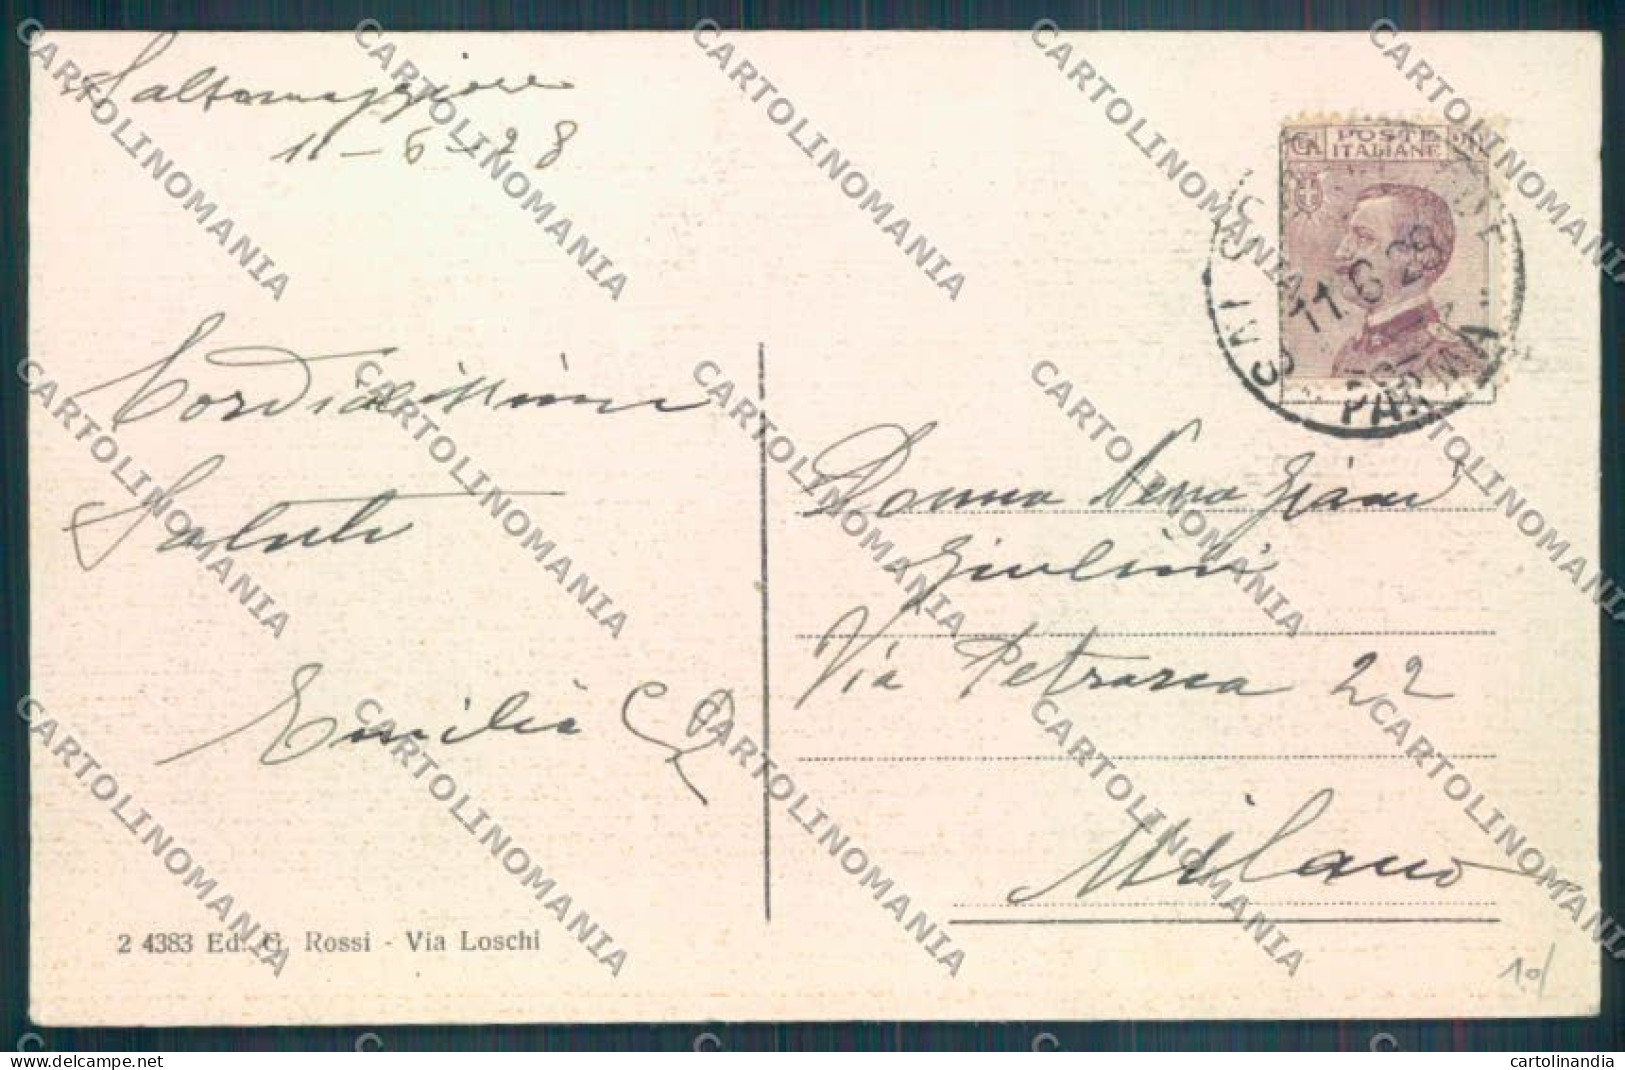 Salsomaggiore
11-6-28
POSTE
ITALIANE
11.6.28
PARMA
Cordialissimi
Saluti
Emilia
Donna Nena Giani
Giulini
Via Petrarca 22
Milano
2 4383 Ed. G. Rossi - Via Loschi
10/
CARTOLINOMANIA
cartolinandia
www.delcampe.net